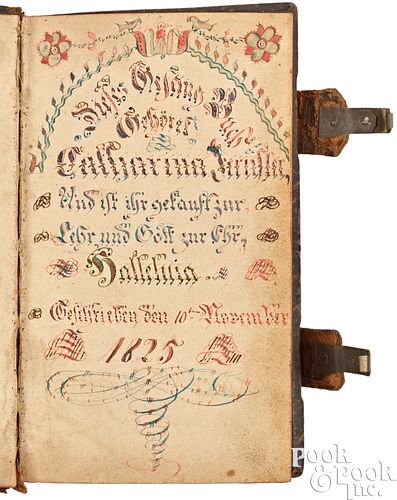 Dieses Gesang B
uch
Gehöret
Catharina
Und ist ihr gekauft zur
Lehr, und Gott zur Ehr,
Halleluia.
Geschrieben den 10ten November
1825
POOK
& POOK
Inc.